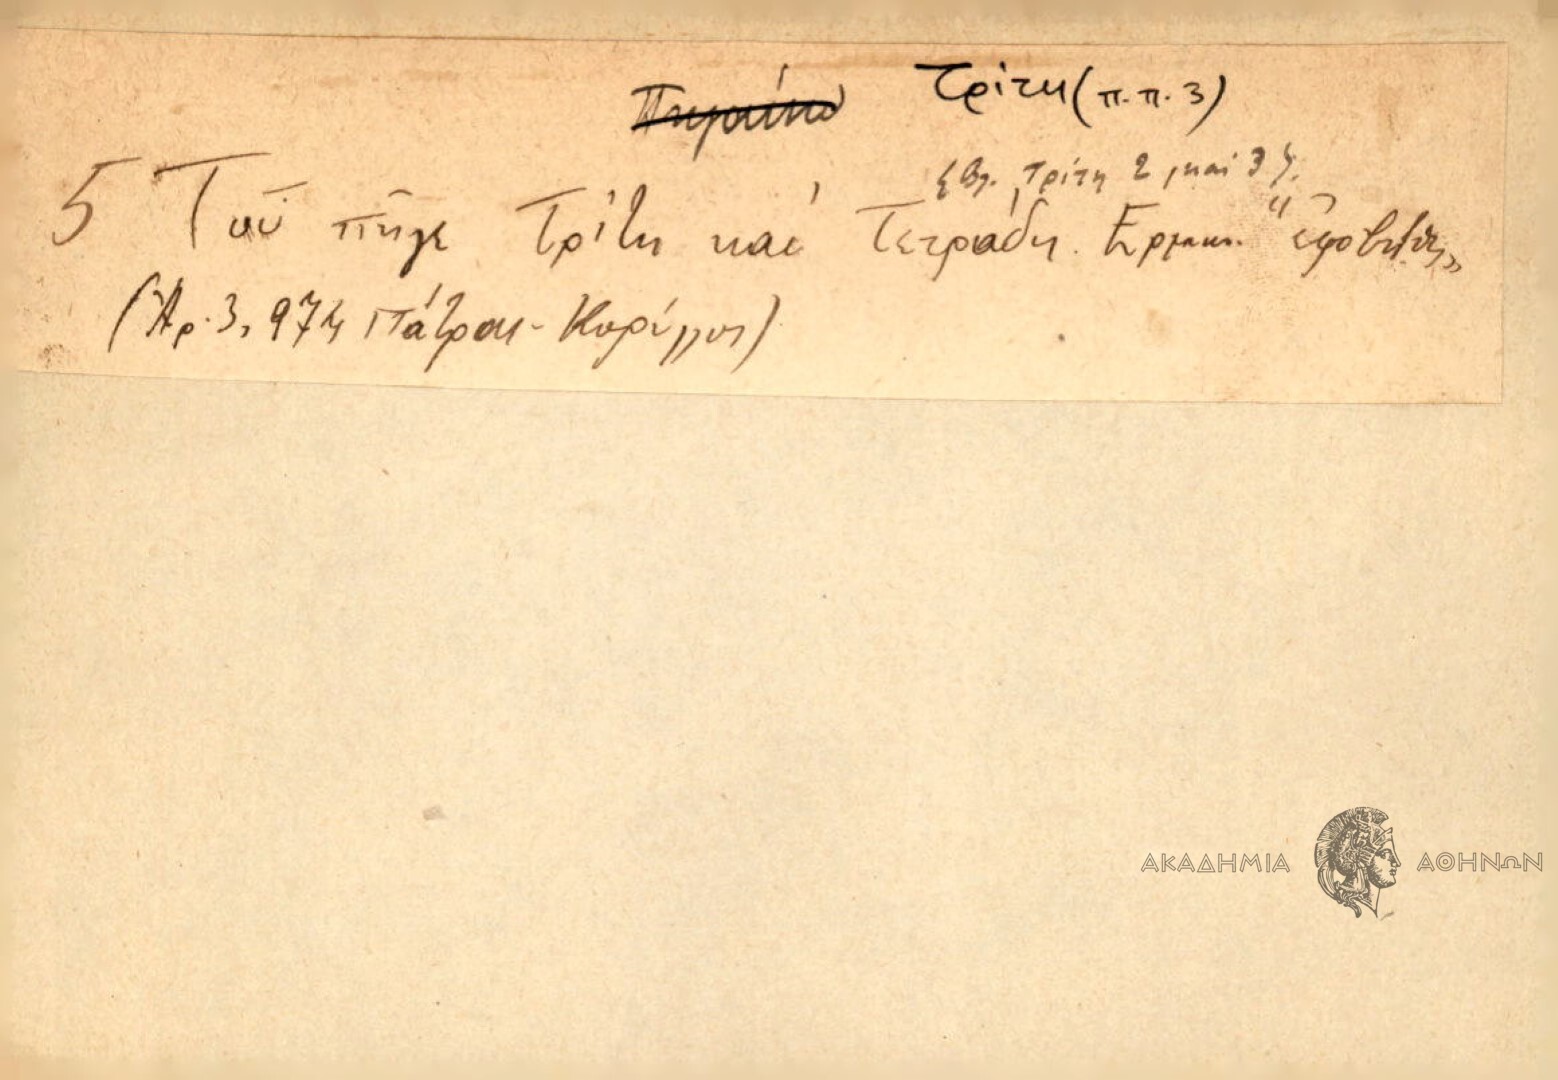 Πηγαίνω Τρίτη (π.π. 3)
{Βλ. Τρίτη 2 και 3}.
5 Τοῦ πῆγε Τρίτη καὶ Τετράδη. Ερμην. "ἐφοβήθη"
(Ἀρ. 3, 974 Πάτραι - Κορύλλος)
ΑΚΑΔΗΜΙΑ ΑΘΗΝΩΝ